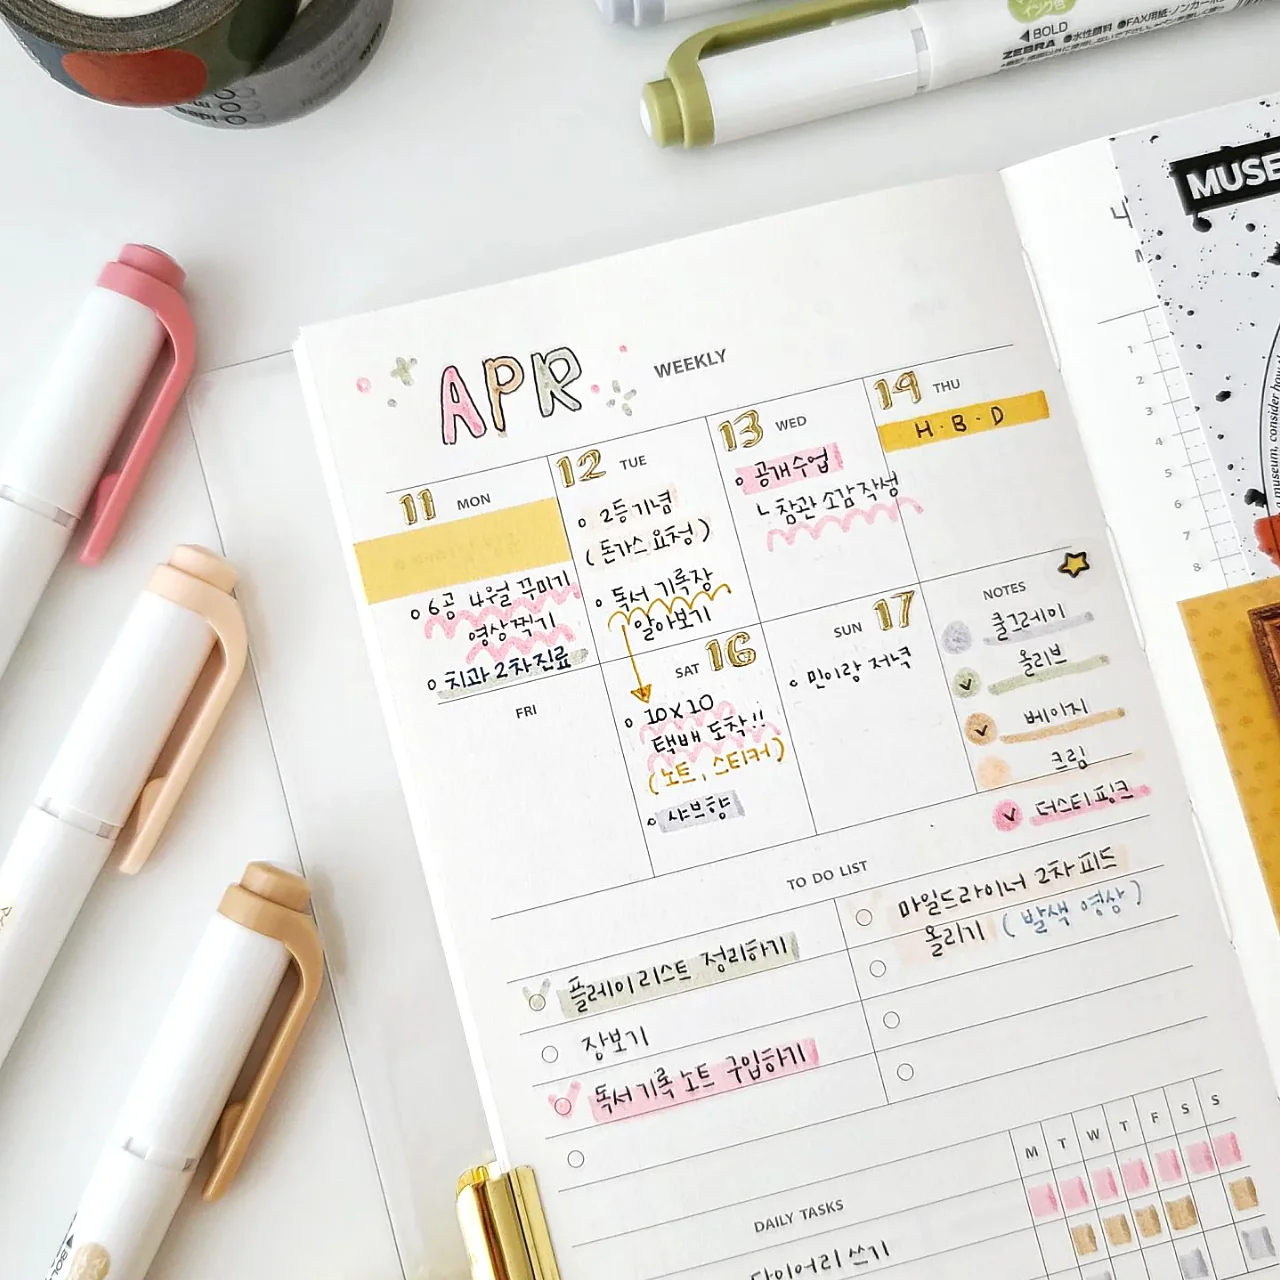 ◀BOLD
ZEBRA
MUSE
APR WEEKLY
11 MON
6공 4월 꾸미기
영상찍기
치과 2차진료
12 TUE
2등기념
(돈가스 요청)
독서 기록장
알아보기
13 WED
공개수업
ㄴ참관 소감작성
14 THU
H·B·D
FRI
SAT 16
10x10
택배 도착!!
(노트, 스티커)
샤브향
SUN 17
민이랑 저녁
NOTES
쿨그레이
올리브
베이지
크림
더스티핑크
TO DO LIST
플레이리스트 정리하기
장보기
독서기록노트 구입하기
마일드라이너 2차피드
올리기 (발색 영상)
M T W T F S S
DAILY TASKS
다이어리쓰기
1
2
3
4
5
6
7
8